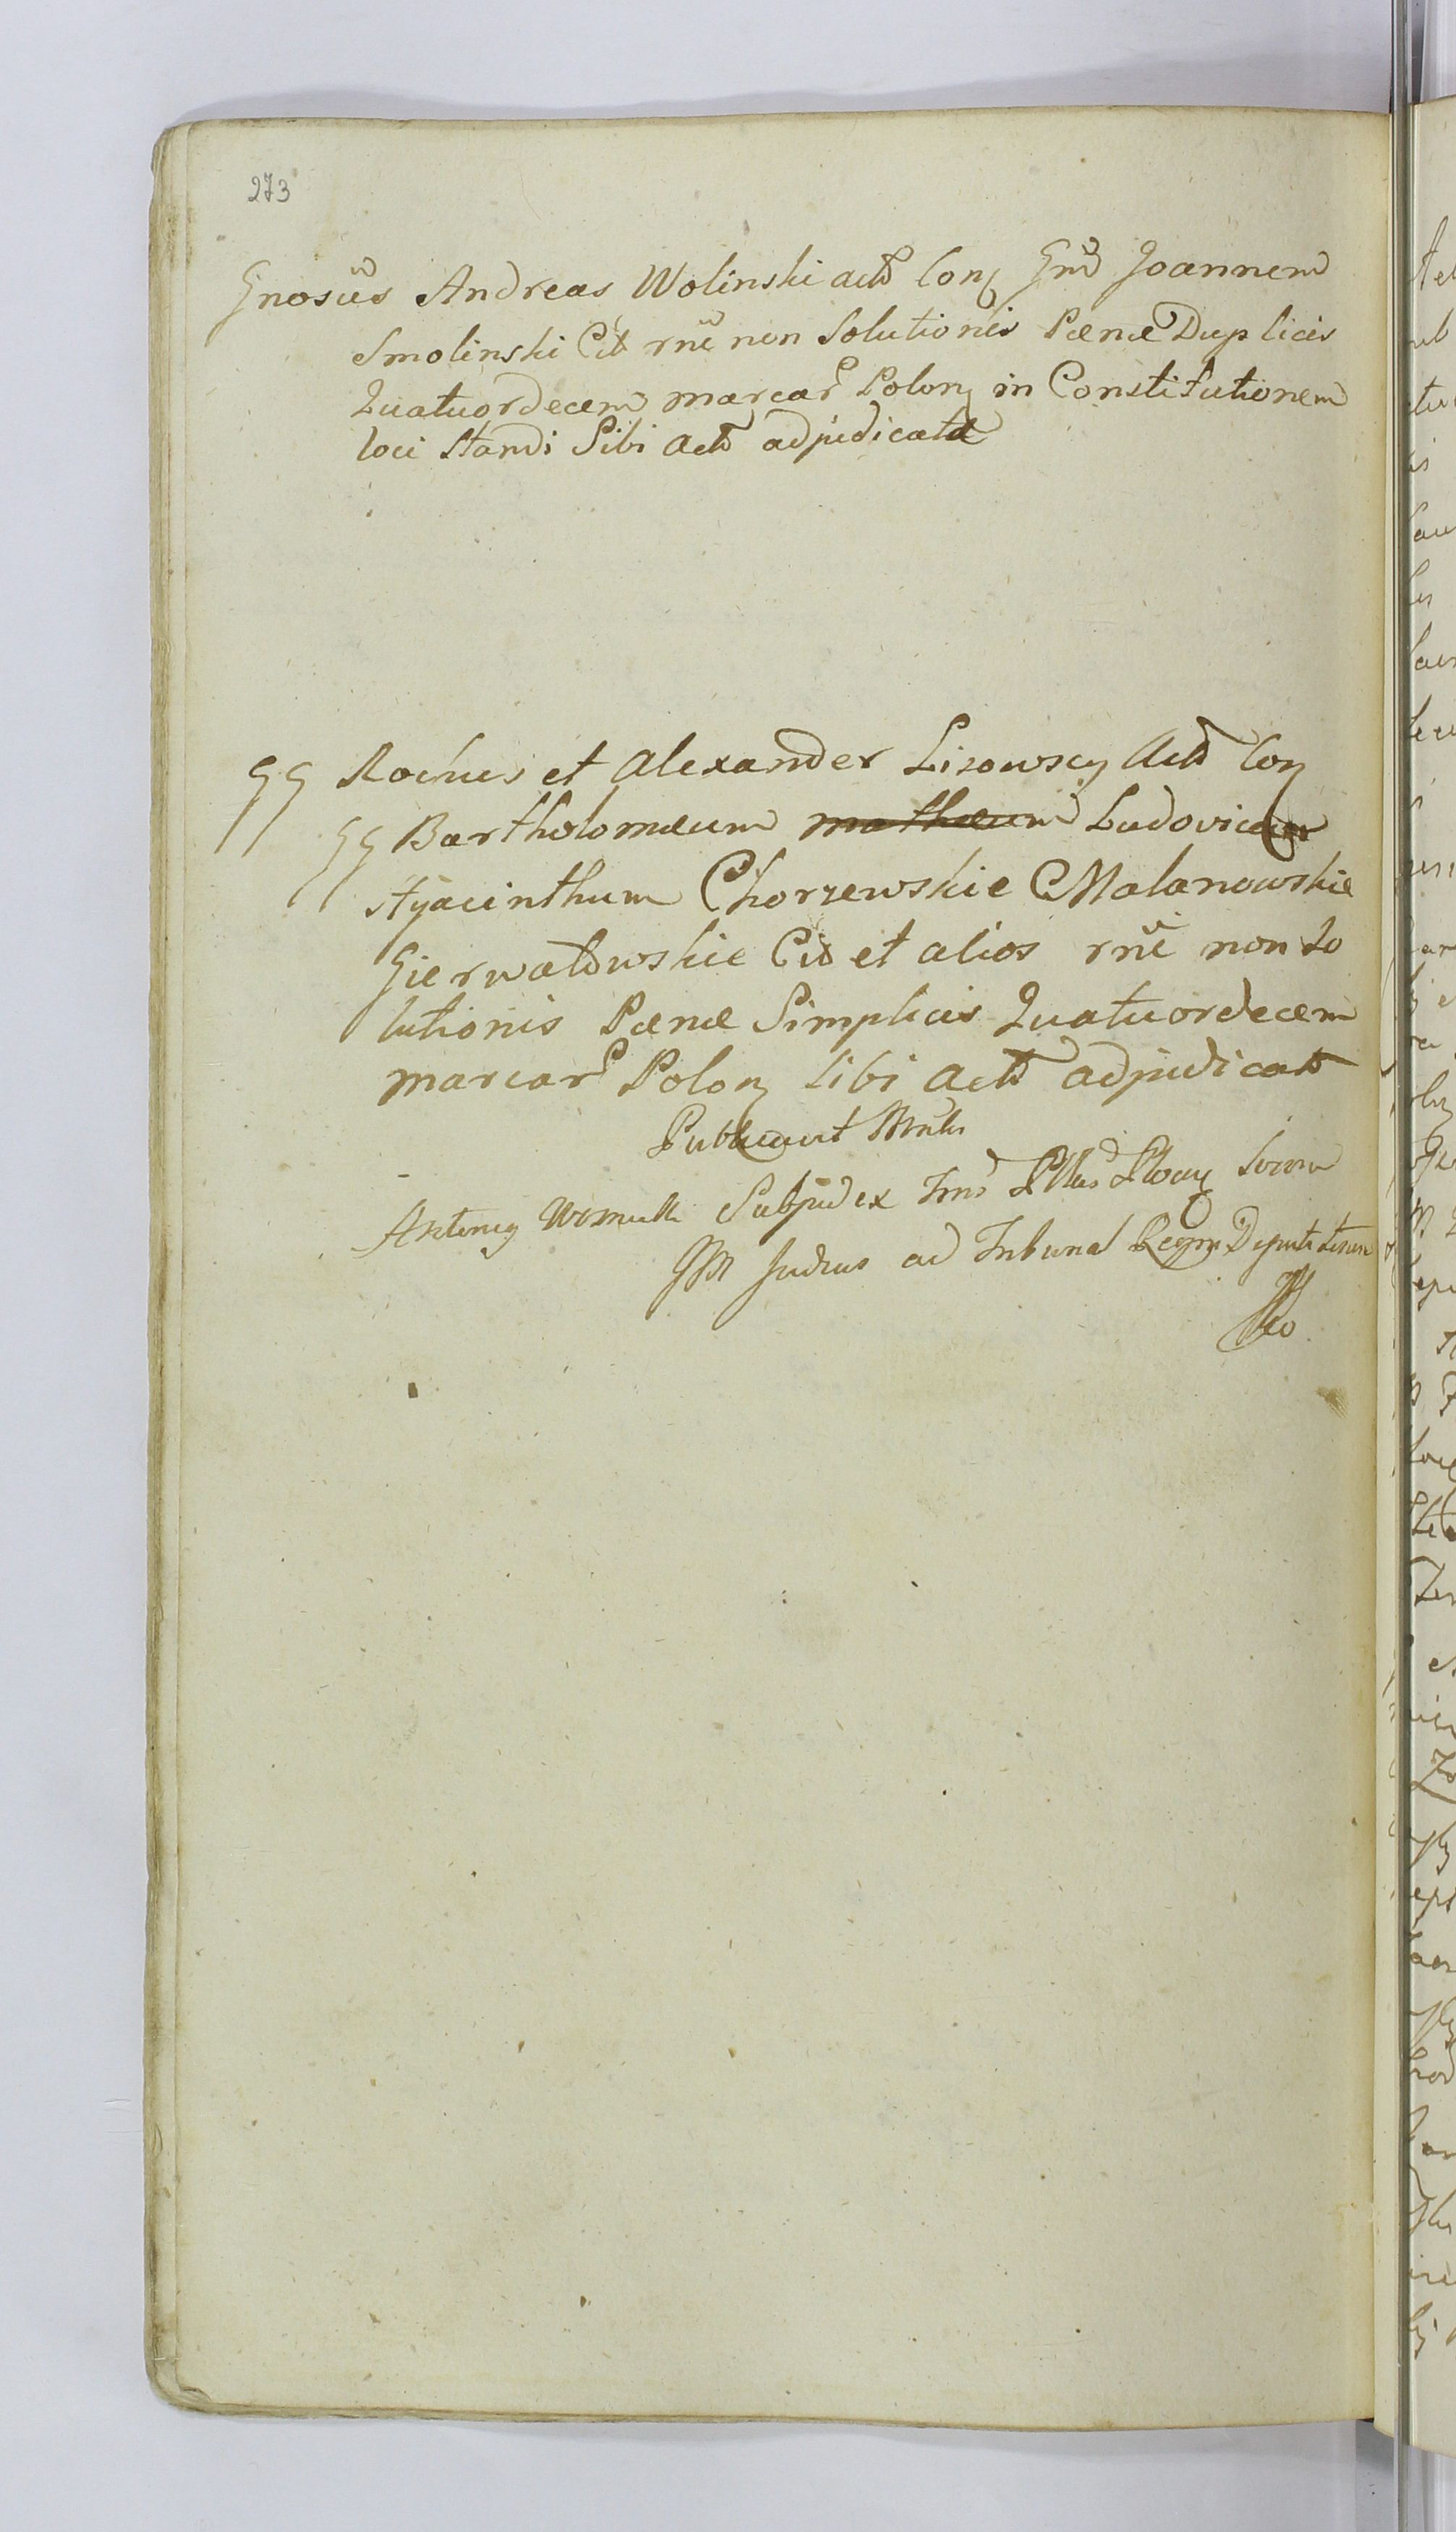 273
Gnosus Andreas Wolinski actd Conz Gnd Joannem
Smolinski Citt rne non Solutionis Pænæ Duplicis
Quatuordecem marcar Polonz in Constitutionem
loci Standi Sibi actd adjudicatæ
GG Rochus et Alexander Lisowscy Actd Conz
GG Bartholomæum mathæum Ludovicum
Hyacinthum Chorzewskie Malanowskie
Gierwatowskie Citt et alios rne non So
lutionis Pænæ Simplicis Quatuordecem
marcar Polonz Sibi actd adjudicatæ
Publicavit
Antoni Subjudex
Judius ad Tribunal Regni